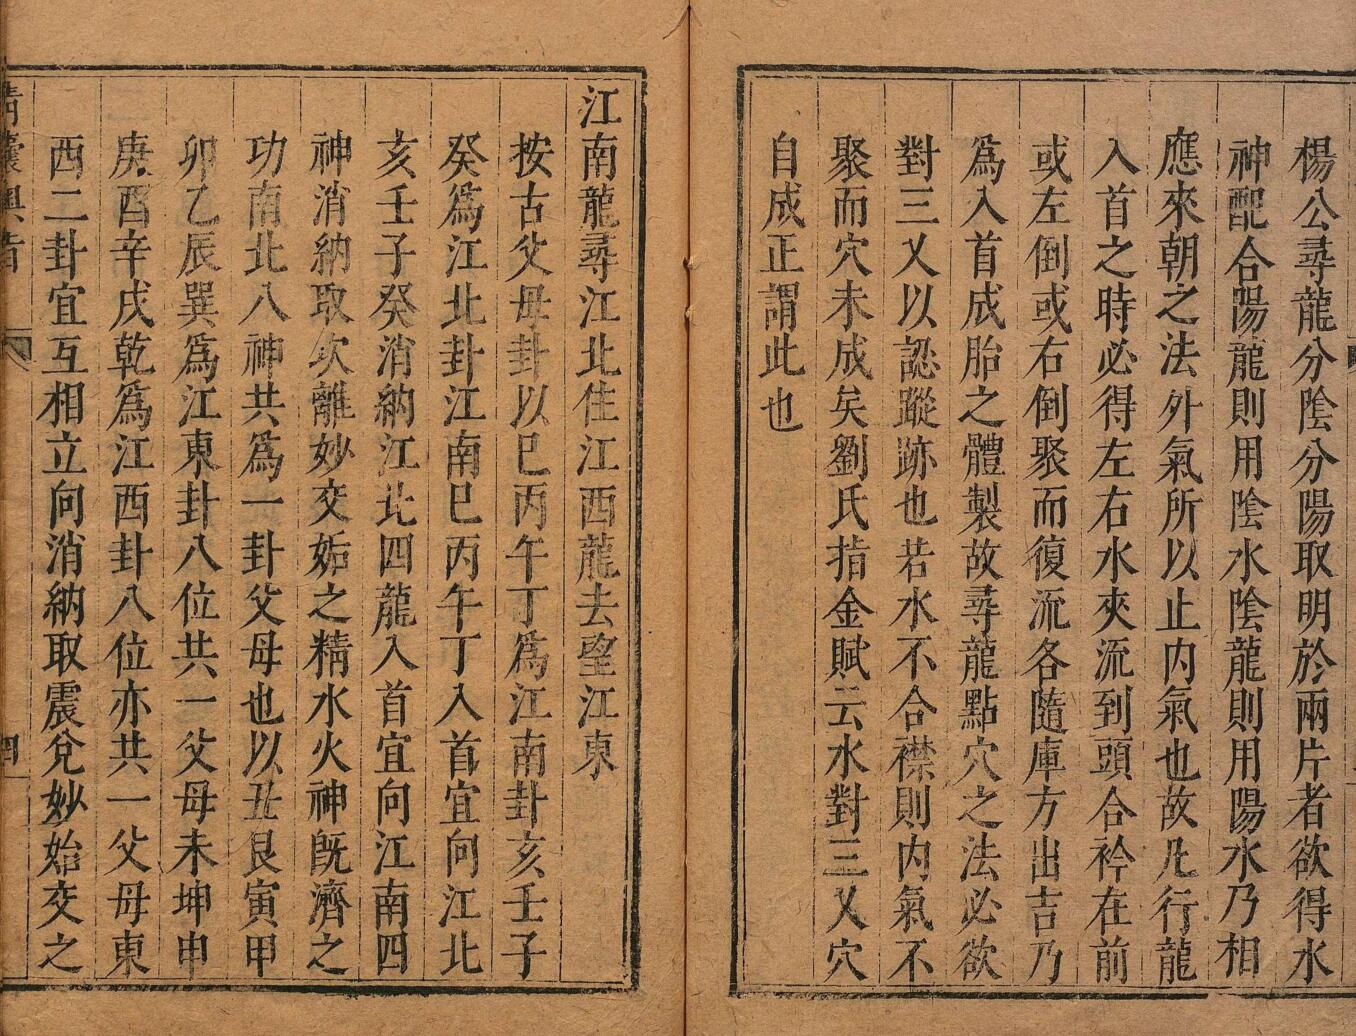 楊公尋龍分陰分陽取明於兩片者欲得水
神配合陽龍則用陰水陰龍則用陽水乃相
應來朝之法外氣所以止內氣也故凡行龍
入首之時必得左右水夾流到頭合衿在前
或左倒或右倒聚而復流各隨庫方出吉乃
爲入首成胎之體製故尋龍點穴之法必欲
對三叉以認蹤跡也若水不合襟則內氣不
聚而穴未成矣劉氏指金賦云水對三叉穴
自成正謂此也
江南龍尋江北住江西龍去望江東
按古父母卦以巳丙午丁爲江南卦亥壬子
癸爲江北卦江南巳丙午丁入首宜向江北
亥壬子癸消納江北四龍入首宜向江南四
神消納取坎離妙交姤之精水火神旣濟之
功南北八神共爲一卦父母也以丑艮寅甲
卯乙辰巽爲江東卦八位共一父母未坤申
庚酉辛戌乾爲江西卦八位亦共一父母東
西二卦宜互相立向消納取震兌妙始交之
青囊奧旨
四